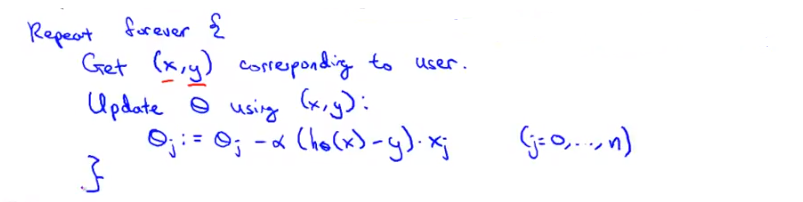 Repeat forever {
Get (x,y) corresponding to user.
Update θ using (x,y):
θj := θj - α (hθ(x) - y) · xj (j=0,...,n)
}